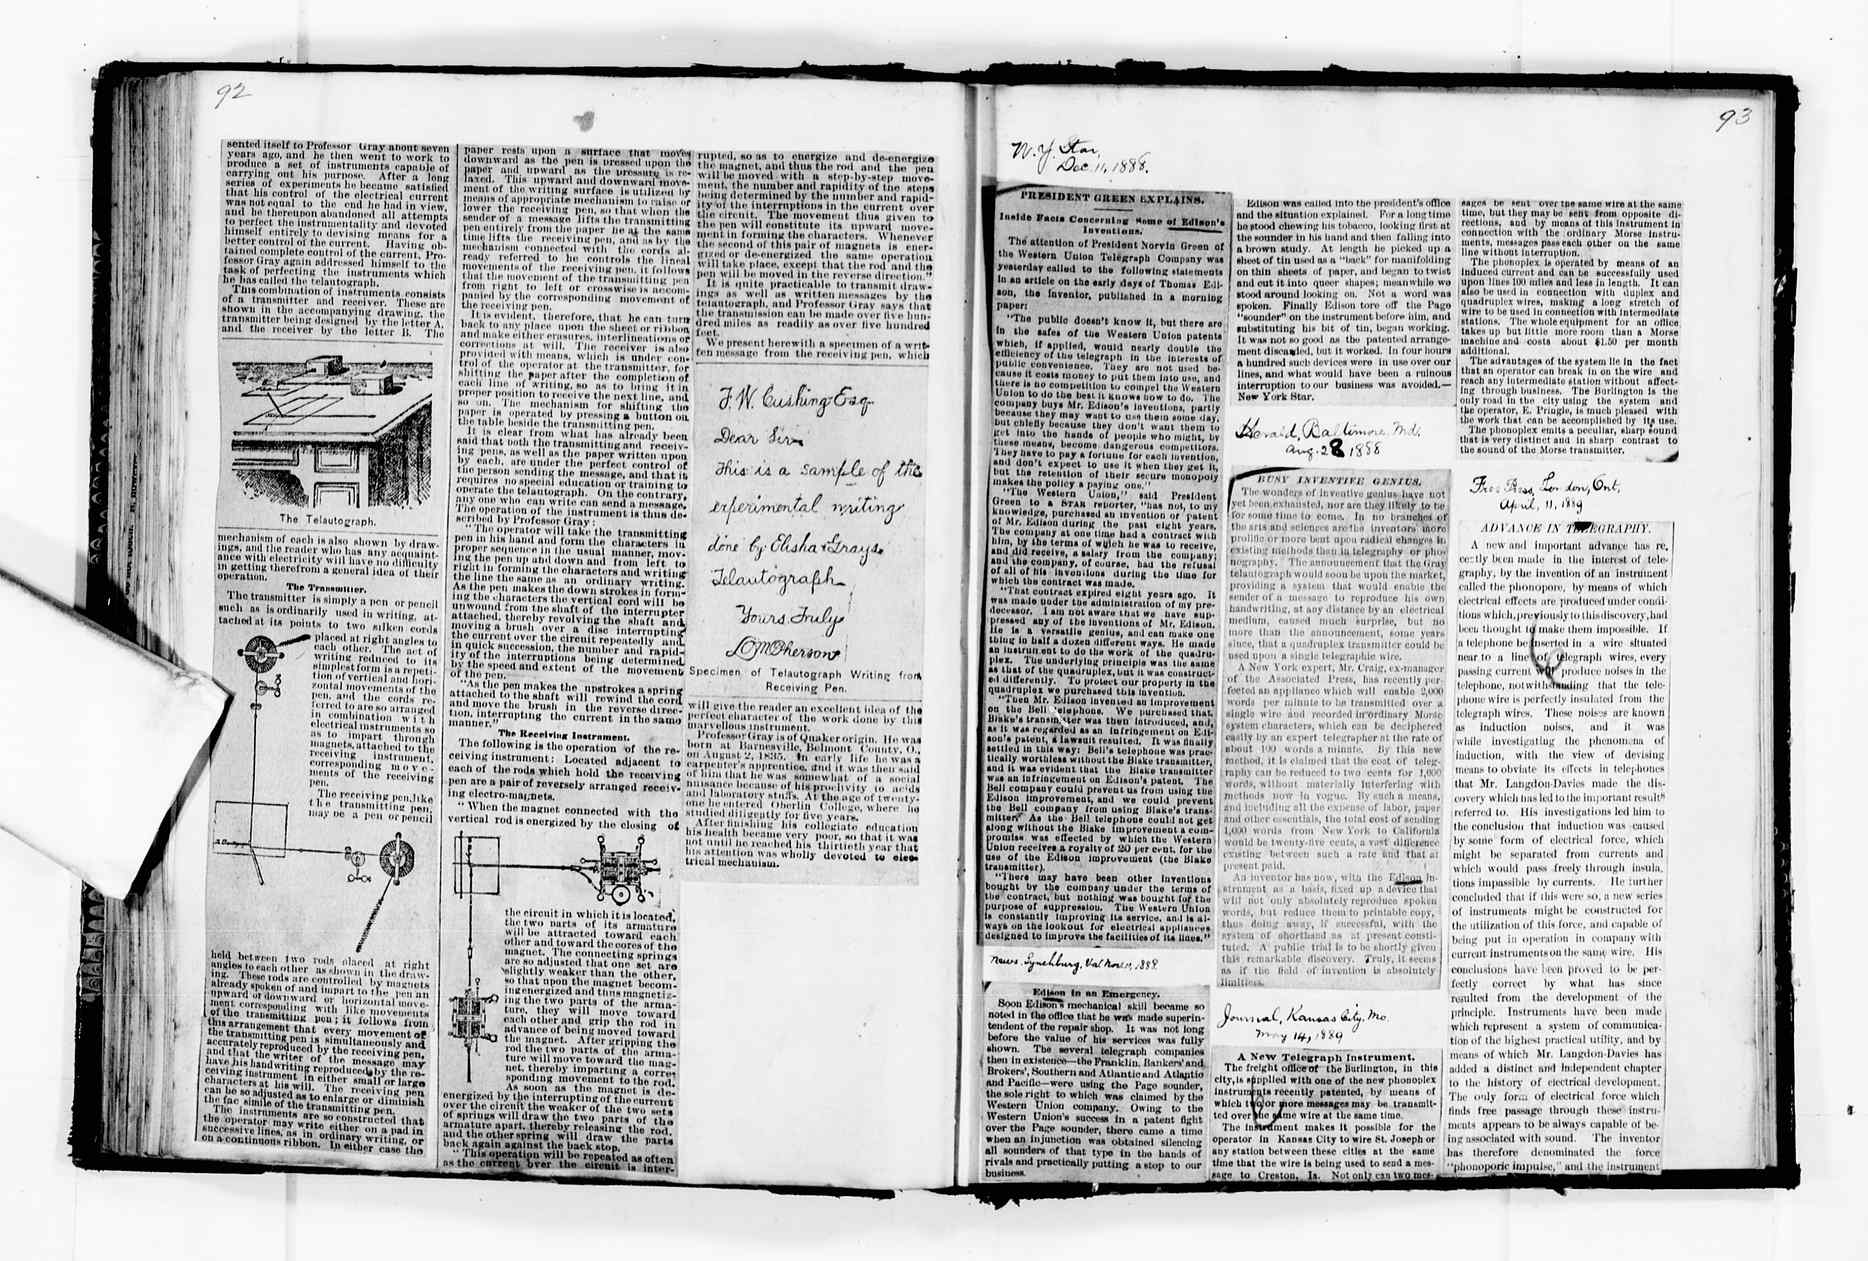 92
sented itself to Professor Gray about seven
years ago, and he then went to work to
produce a set of instruments capable of
carrying out his purpose. After a long
series of experiments he became satisfied
that his control of the electrical current
was not equal to the end he had in view,
and he thereupon abandoned all attempts
to perfect the instrumentality and devoted
himself entirely to devising means for a
better control of the current. Having ob-
tained complete control of the current, Pro-
fessor Gray again addressed himself to the
task of perfecting the instruments which
he has called the telautograph.
This combination of instruments consists
of a transmitter and receiver. These are
shown in the accompanying drawing, the
transmitter being designed by the letter A,
and the receiver by the letter B. The
The Telautograph.
mechanism of each is also shown by draw-
ings, and the reader who has any acquaint-
ance with electricity will have no difficulty
in getting therefrom a general idea of their
operation.
The Transmitter.
The transmitter is simply a pen or pencil
such as is ordinarily used in writing, at-
tached at its points to two silken cords
placed at right angles to
each other. The act of
writing reduced to its
simplest form is a repeti-
tion of vertical and hori-
zontal movements of the
pen, and the cords re-
ferred to are so arranged
in combination with
electrical instruments so
as to impart through
magnets, attached to the
receiving instrument,
corresponding move-
ments of the receiving
pen.
The receiving pen, like
the transmitting pen,
may be a pen or pencil
held between two rods placed at right
angles to each other as shown in the draw-
ing. These rods are controlled by magnets
already spoken of and impart to the pen an
upward or downward or horizontal move-
ment corresponding with like movements
of the transmitting pen; it follows from
this arrangement that every movement of
the transmitting pen is simultaneously and
accurately reproduced by the receiving pen,
and that the writer of the message may
have his handwriting reproduced by the re-
ceiving instrument in either small or large
characters at his will. The receiving pen
can be so adjusted as to enlarge or diminish
the fac simile of the transmitting pen.
The instruments are so constructed that
the operator may write either on a pad in
successive lines, as in ordinary writing, or
on a continuous ribbon. In either case the
paper rests upon a surface that moves
downward as the pen is pressed upon the
paper and upward as the pressure is re-
laxed. This upward and downward move-
ment of the writing surface is utilized by
means of appropriate mechanism to raise or
lower the receiving pen, so that when the
sender of a message lifts the transmitting
pen entirely from the paper he at the same
time lifts the receiving pen, and as by the
mechanism connected with the cords al-
ready referred to he controls the lineal
movements of the receiving pen, it follows
that the movement of the transmitting pen
from right to left or crosswise is accom-
panied by the corresponding movement of
the receiving pen.
It is evident, therefore, that he can turn
back to any place upon the sheet or ribbon
and make either erasures, interlineations or
corrections at will. The receiver is also
provided with means, which is under con-
trol of the operator at the transmitter, for
shifting the paper after the completion of
each line of writing, so as to bring it in
proper position to receive the next line, and
so on. The mechanism for shifting the
paper is operated by pressing a button on
the table beside the transmitting pen.
It is clear from what has already been
said that both the transmitting and receiv-
ing pens, as well as the paper written upon
by each, are under the perfect control of
the person sending the message, and that it
requires no special education or training to
operate the telautograph. On the contrary,
any one who can write can send a message.
The operation of the instrument is thus de-
scribed by Professor Gray:
"The operator will take the transmitting
pen in his hand and form the characters in
proper sequence in the usual manner, mov-
ing the pen up and down and from left to
right in forming the characters and writing
the line the same as in ordinary writing.
As the pen makes the down strokes in form-
ing the characters the vertical cord will be
unwound from the shaft of the interrupter
attached, thereby revolving the shaft and
moving a brush over a disc interrupting
the current over the circuit repeatedly and
in quick succession, the number and rapid-
ity of the interruptions being determined
by the speed and extent of the movement
of the pen.
"As the pen makes the upstrokes a spring
attached to the shaft will rewind the cord
and move the brush in the reverse direc-
tion, interrupting the current in the same
manner."
The Receiving Instrument.
The following is the operation of the re-
ceiving instrument: Located adjacent to
each of the rods which hold the receiving
pen are a pair of reversely arranged receiv-
ing electro-magnets.
"When the magnet connected with the
vertical rod is energized by the closing of
the circuit in which it is located,
the two parts of its armature
will be attracted toward each
other and toward the cores of the
magnet. The connecting springs
are so adjusted that one set are
slightly weaker than the other,
so that upon the magnet becom-
ing energized and thus magnetiz-
ing the two parts of the arma-
ture, they will move toward
each other and grip the rod in
advance of being moved toward
the magnet. After gripping the
rod the two parts of the arma-
ture will move toward the mag-
net, thereby imparting a corre-
sponding movement to the rod.
As soon as the magnet is de-
energized by the interrupting of the current
over the circuit the weaker of the two sets
of springs will draw the two parts of the
armature apart, thereby releasing the rod,
and the other spring will draw the parts
back again against the back stop.
"This operation will be repeated as often
as the current over the circuit is inter-
rupted, so as to energize and de-energize
the magnet, and thus the rod and the pen
will be moved with a step-by-step move-
ment, the number and rapidity of the steps
being determined by the number and rapid-
ity of the interruptions in the current over
the circuit. The movement thus given to
the pen will constitute its upward move-
ment in forming the characters. Whenever
the second of this pair of magnets is ener-
gized or de-energized the same operation
will take place, except that the rod and the
pen will be moved in the reverse direction."
It is quite practicable to transmit draw-
ings as well as written messages by the
telautograph, and Professor Gray says that
the transmission can be made over five hun-
dred miles as readily as over five hundred
feet.
We present herewith a specimen of a writ-
ten message from the receiving pen, which
F. W. Cushing Esq
Dear Sir
This is a sample of the
experimental writing
done by Elisha Grays
Telautograph
Yours Truly
McPherson
Specimen of Telautograph Writing from
Receiving Pen.
will give the reader an excellent idea of the
perfect character of the work done by this
marvellous instrument.
Professor Gray is of Quaker origin. He was
born at Barnesville, Belmont County, O.,
on August 2, 1835. In early life he was a
carpenter's apprentice, and it was then said
of him that he was somewhat of a social
nuisance because of his proclivity to acids
and laboratory stuffs. At the age of twenty-
one he entered Oberlin College, where he
studied diligently for five years.
After finishing his collegiate education
his health became very poor, so that it was
not until he reached his thirtieth year that
his attention was wholly devoted to elec-
trical mechanism.
93
N. Y. Star,
Dec. 11, 1888.
PRESIDENT GREEN EXPLAINS.
Inside Facts Concerning Some of Edison's
Inventions.
The attention of President Norvin Green of
the Western Union Telegraph Company was
yesterday called to the following statements
in an article on the early days of Thomas Edi-
son, the inventor, published in a morning
paper:
"The public doesn't know it, but there are
in the safes of the Western Union patents
which, if applied, would nearly double the
efficiency of the telegraph in the interests of
public convenience. They are not used be-
cause it costs money to put them into use, and
there is no competition to compel the Western
Union to do the best it knows how to do. The
company buys Mr. Edison's inventions, partly
because they may want to use them some day,
but chiefly because they don't want them to
get into the hands of people who might, by
these means, become dangerous competitors.
They have to pay a fortune for each invention,
and don't expect to use it when they get it,
but the retention of their secure monopoly
makes the policy a paying one."
"The Western Union," said President
Green to a STAR reporter, "has not, to my
knowledge, purchased an invention or patent
of Mr. Edison during the past eight years.
The company at one time had a contract with
him, by the terms of which he was to receive,
and did receive, a salary from the company;
and the company, of course, had the refusal
of all of his inventions during the time for
which the contract was made.
"That contract expired eight years ago. It
was made under the administration of my pre-
decessor. I am not aware that we have sup-
pressed any of the inventions of Mr. Edison.
He is a versatile genius, and can make one
thing in half a dozen different ways. He made
an instrument to do the work of the quadru-
plex. The underlying principle was the same
as that of the quadruplex, but it was construct-
ed differently. To protect our property in the
quadruplex we purchased this invention.
"Then Mr. Edison invented an improvement
on the Bell telephone. We purchased that.
Blake's transmitter was then introduced, and,
as it was regarded as an infringement on Edi-
son's patent, a lawsuit resulted. It was finally
settled in this way: Bell's telephone was prac-
tically worthless without the Blake transmitter,
and it was evident that the Blake transmitter
was an infringement on Edison's patent. The
Bell company could prevent us from using the
Edison improvement, and we could prevent
the Bell company from using Blake's trans-
mitter. As the Bell telephone could not get
along without the Blake improvement a com-
promise was effected by which the Western
Union receives a royalty of 20 per cent. for the
use of the Edison improvement (the Blake
transmitter).
"There may have been other inventions
bought by the company under the terms of
the contract, but nothing was bought for the
purpose of suppression. The Western Union
is constantly improving its service, and is al-
ways on the lookout for electrical appliances
designed to improve the facilities of its lines."
News, Lynchburg, Va. Nov. 11, 1888.
Edison in an Emergency.
Soon Edison's mechanical skill became so
noted in the office that he was made superin-
tendent of the repair shop. It was not long
before the value of his services was fully
shown. The several telegraph companies
then in existence—the Franklin, Bankers' and
Brokers', Southern and Atlantic and Atlantic
and Pacific—were using the Page sounder,
the sole right to which was claimed by the
Western Union company. Owing to the
Western Union's success in a patent fight
over the Page sounder, there came a time
when an injunction was obtained silencing
all sounders of that type in the hands of
rivals and practically putting a stop to our
business.
Edison was called into the president's office
and the situation explained. For a long time
he stood chewing his tobacco, looking first at
the sounder in his hand and then falling into
a brown study. At length he picked up a
sheet of tin used as a "back" for manifolding
on thin sheets of paper, and began to twist
and cut it into queer shapes; meanwhile we
stood around looking on. Not a word was
spoken. Finally Edison tore off the Page
"sounder" on the instrument before him, and
substituting his bit of tin, began working.
It was not so good as the patented arrange-
ment discarded, but it worked. In four hours
a hundred such devices were in use over our
lines, and what would have been a ruinous
interruption to our business was avoided.—
New York Star.
Herald, Baltimore, Md.
Aug. 28 1888
BUSY INVENTIVE GENIUS.
The wonders of inventive genius have not
yet been exhausted, nor are they likely to be
for some time to come. In no branches of
the arts and sciences are the inventors more
prolific or more bent upon radical changes in
existing methods than in telegraphy or pho-
nography. The announcement that the Gray
telautograph would soon be upon the market,
providing a system that would enable the
sender of a message to reproduce his own
handwriting, at any distance by an electrical
medium, caused much surprise, but no
more than the announcement, some years
since, that a quadruplex transmitter could be
used upon a single telegraphic wire.
A New York expert, Mr. Craig, ex-manager
of the Associated Press, has recently per-
fected an appliance which will enable 2,000
words per minute to be transmitted over a
single wire and recorded in ordinary Morse
system characters, which can be deciphered
easily by an expert telegrapher at the rate of
about 100 words a minute. By this new
method, it is claimed that the cost of teleg-
raphy can be reduced to two cents for 1,000
words, without materially interfering with
methods now in vogue. By such a means,
and including all the expense of labor, paper
and other essentials, the total cost of sending
1,000 words from New York to California
would be twenty-five cents, a vast difference
existing between such a rate and that at
present paid.
An inventor has now, with the Edison in-
strument as a basis, fixed up a device that
will not only absolutely reproduce spoken
words, but reduce them to printable copy,
thus doing away, if successful, with the
system of shorthand as at present consti-
tuted. A public trial is to be shortly given
this remarkable discovery. Truly, it seems
as if the field of invention is absolutely
limitless.
Journal, Kansas City, Mo.
May 14, 1889
A New Telegraph Instrument.
The freight office of the Burlington, in this
city, is supplied with one of the new phonoplex
instruments recently patented, by means of
which two or more messages may be transmit-
ted over the same wire at the same time.
The instrument makes it possible for the
operator in Kansas City to wire St. Joseph or
any station between these cities at the same
time that the wire is being used to send a mes-
sage to Creston, Ia. Not only can two mes-
sages be sent over the same wire at the same
time, but they may be sent from opposite di-
rections, and by means of this instrument in
connection with the ordinary Morse instru-
ments, messages pass each other on the same
line without interruption.
The phonoplex is operated by means of an
induced current and can be successfully used
upon lines 100 miles and less in length. It can
also be used in connection with duplex and
quadruplex wires, making a long stretch of
wire to be used in connection with intermediate
stations. The whole equipment for an office
takes up but little more room than a Morse
machine and costs about $1.50 per month
additional.
The advantages of the system lie in the fact
that an operator can break in on the wire and
reach any intermediate station without affect-
ing through business. The Burlington is the
only road in the city using the system and
the operator, E. Pringle, is much pleased with
the work that can be accomplished by its use.
The phonoplex emits a peculiar, sharp sound
that is very distinct and in sharp contrast to
the sound of the Morse transmitter.
Free Press, London, Ont,
April, 11, 1889
ADVANCE IN TELEGRAPHY.
A new and important advance has re-
cently been made in the interest of tele-
graphy, by the invention of an instrument
called the phonopore, by means of which
electrical effects are produced under condi-
tions which, previously to this discovery, had
been thought to make them impossible. If
a telephone be inserted in a wire situated
near to a line of telegraph wires, every
passing current will produce noises in the
telephone, notwithstanding that the tele-
phone wire is perfectly insulated from the
telegraph wires. These noises are known
as induction noises, and it was
while investigating the phenomena of
induction, with the view of devising
means to obviate its effects in telephones
that Mr. Langdon-Davies made the dis-
covery which has led to the important results
referred to. His investigations led him to
the conclusion that induction was caused
by some form of electrical force, which
might be separated from currents and
which would pass freely through insula-
tions impassible by currents. He further
concluded that if this were so, a new series
of instruments might be constructed for
the utilization of this force, and capable of
being put in operation in company with
current instruments on the same wire. His
conclusions have been proved to be per-
fectly correct by what has since
resulted from the development of the
principle. Instruments have been made
which represent a system of communica-
tion of the highest practical utility, and by
means of which Mr. Langdon-Davies has
added a distinct and independent chapter
to the history of electrical development.
The only form of electrical force which
finds free passage through these instru-
ments appears to be always capable of be-
ing associated with sound. The inventor
has therefore denominated the force
"phonoporic impulse," and the instrument